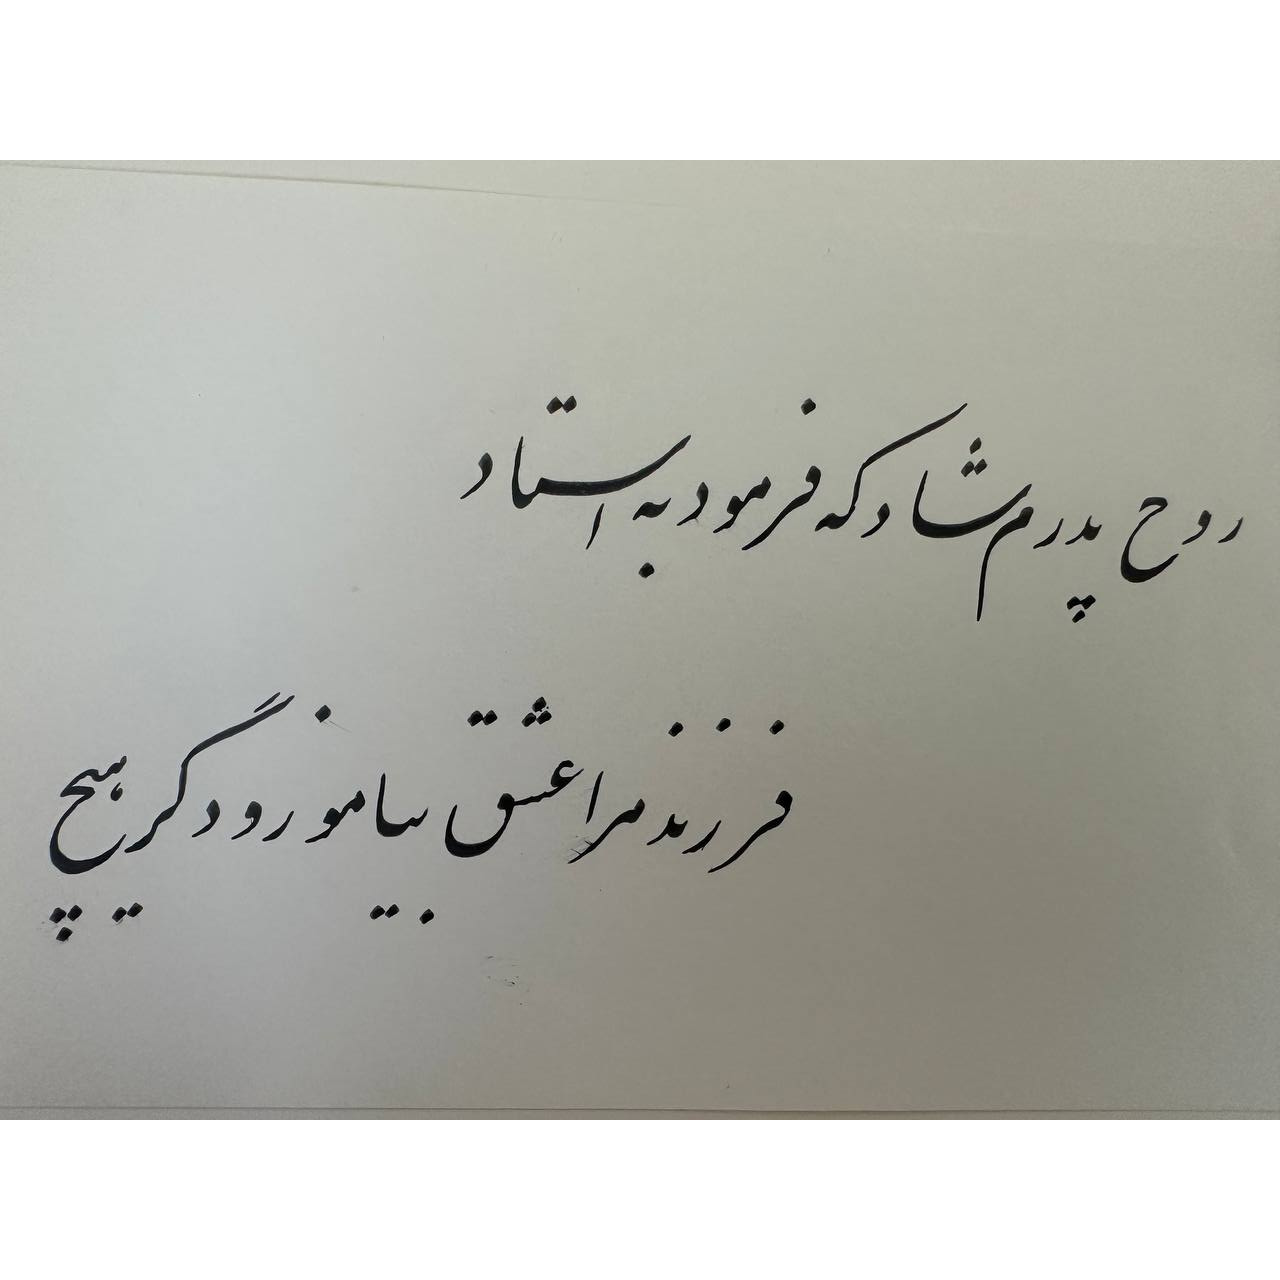 روح پدرم شاد که فرمود به استاد
فرزند مرا عشق بیاموز و دگر هیچ